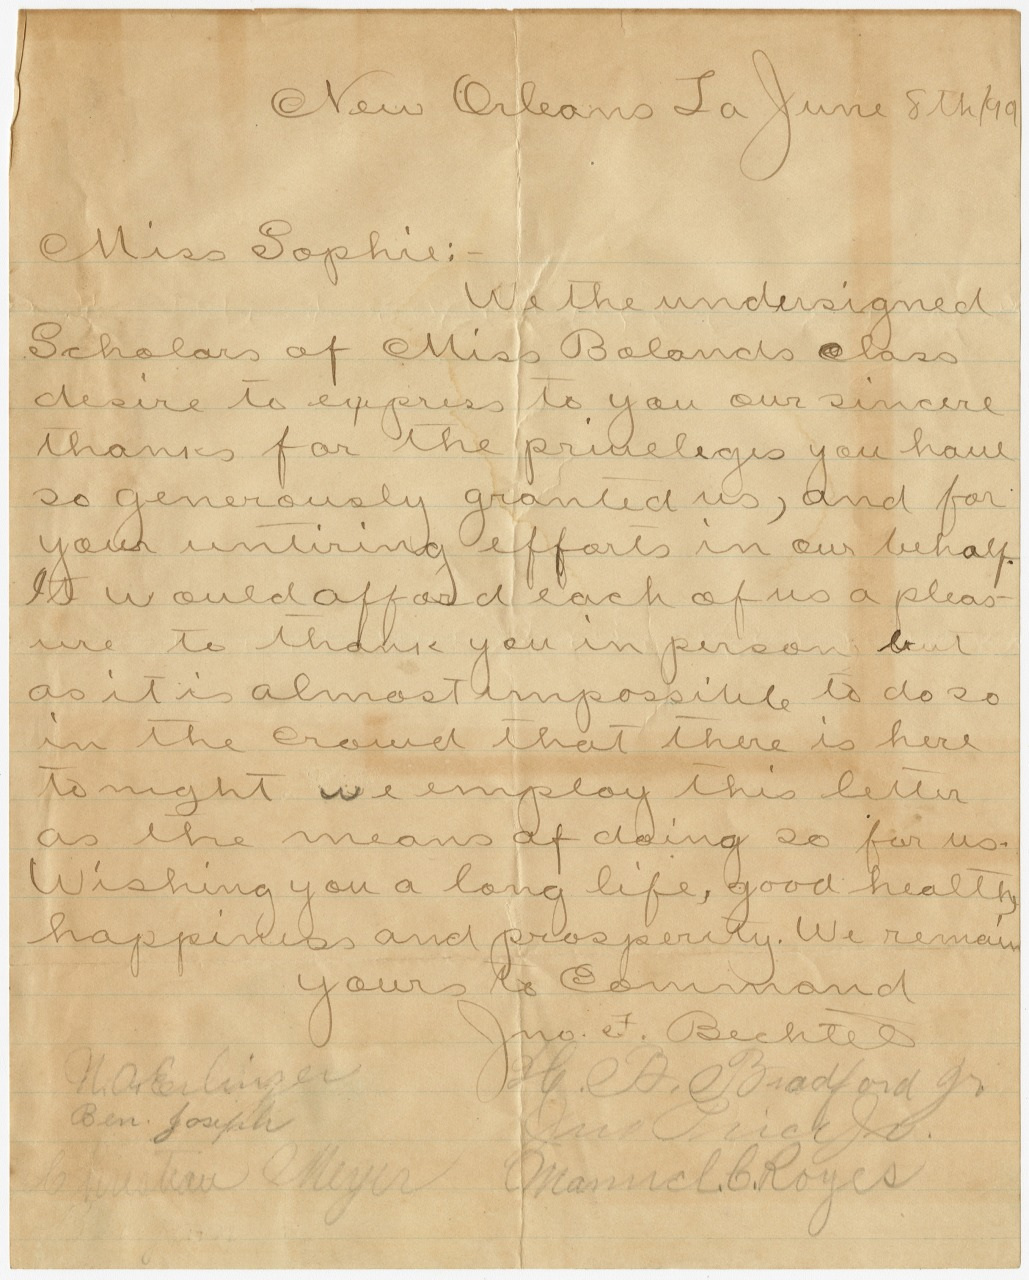 New Orleans La June 8th/99
Miss Sophie:-
We the undersigned
Scholars of Miss Bolands class
desire to express to you our sincere
thanks for the priveleges you have
so generously granted us, and for
your untiring efforts in our behalf.
It would afford each of us a pleas-
ure to thank you in person but
as it is almost impossible to do so
in the crowd that there is here
tonight we employ this letter
as the means of doing so for us.
Wishing you a long life, good health,
happiness and prosperity. We remain
yours to Command
Jno. F. Bechtel
H. B. Bradford Jr.
Ben. Joseph
Price Jr.
Christian Meyer Manuel. C. Royes